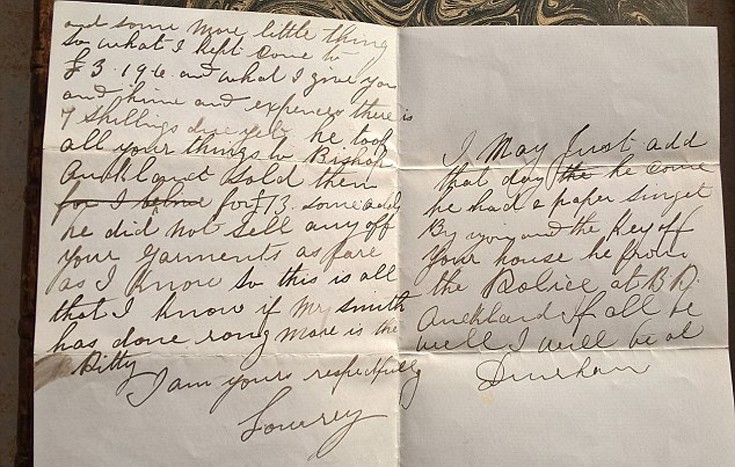 and some more little thing
so what I kept come to
£3.19.6. and what I give you
and hime and expences there is
7 shillings due yeb he took
all your things to Bishop
Auckland sold them
for I for £13. some
he did not sell any off
your garments as fare
as I know so this is all
that I know if Mr Smith
has done rong more is the
Pitty
I am yours respectfully
Lowrey
I May Just add
that day the he come
he had a paper singet
By you and the Key off
your house he from
the Police at
Auckland If all be
well I will be at
Durham